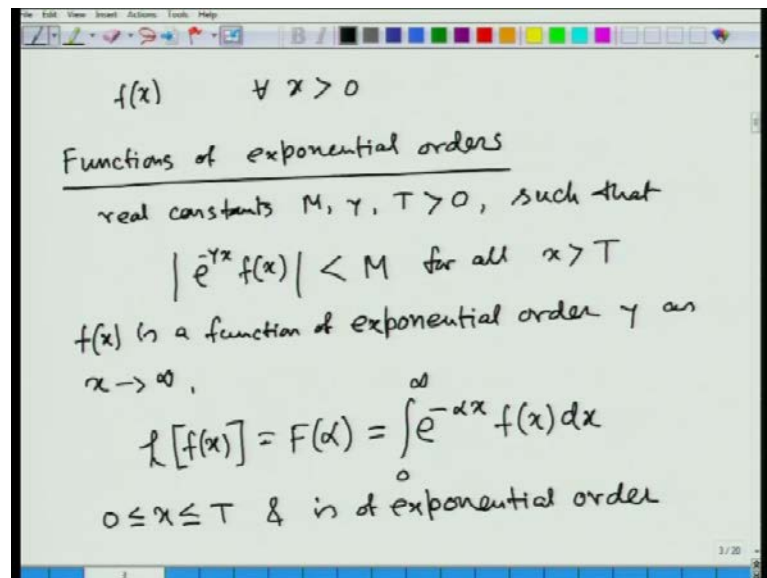 File Edit View Insert Actions Tools Help
B I
f(x) ∀ x > 0
Functions of exponential orders
real constants M, γ, T > 0, such that
| e^{-γx} f(x) | < M for all x > T
f(x) is a function of exponential order γ as
x -> ∞,
L[f(x)] = F(α) = ∫_0^∞ e^{-αx} f(x) dx
0 ≤ x ≤ T & is of exponential order
3/20
3